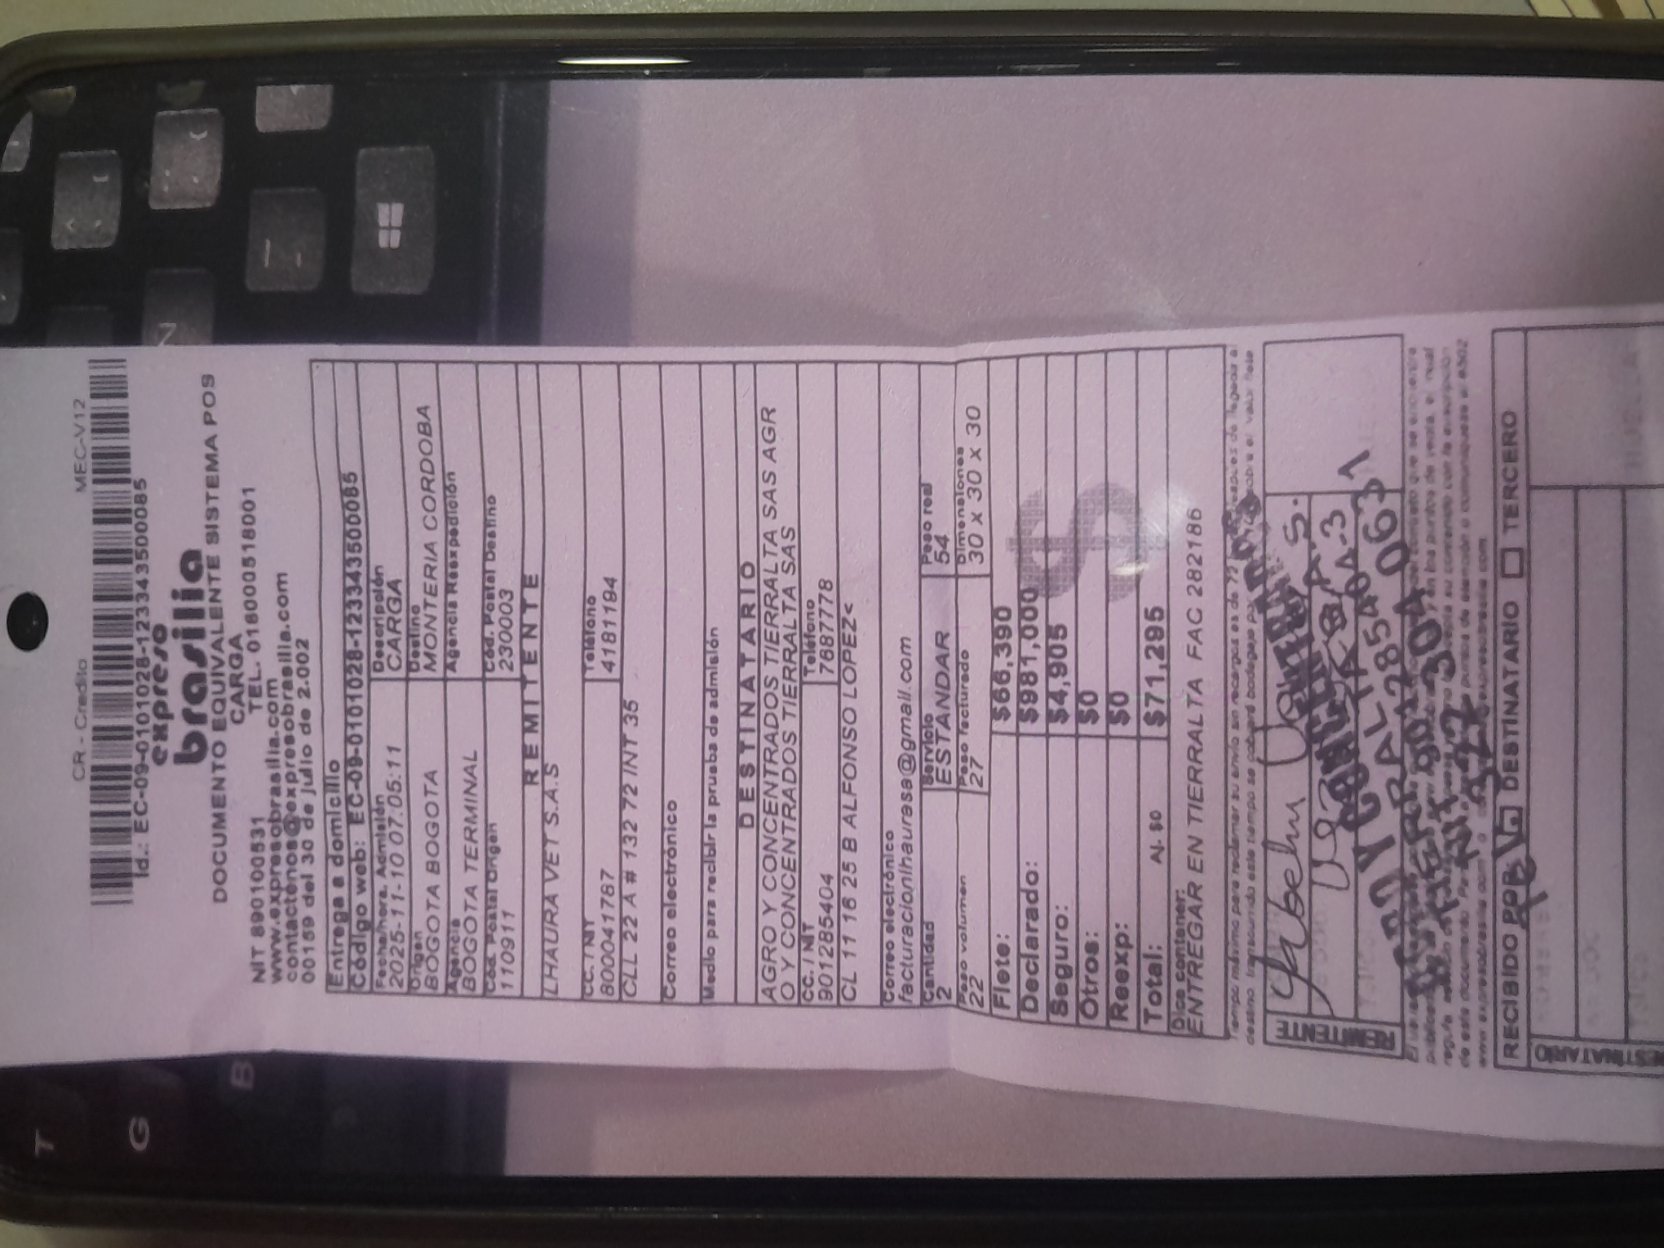 CR - Credito MEC-V12
Id.: EC-09-0101028-1233435​00085
expreso
brasilia
DOCUMENTO EQUIVALENTE SISTEMA POS
CARGA
NIT 890100531 TEL. 018000518001
www.expresobrasilia.com
contactenos@expresobrasilia.com
00159 del 30 de julio de 2.002
Entrega a domicilio
Código web: EC-09-0101028-123343500085
Fecha/hora. Admisión Descripción
2025-11-10 07:05:11 CARGA
Origen Destino
BOGOTA BOGOTA MONTERIA CORDOBA
Agencia Agencia Reexpedición
BOGOTA TERMINAL
Cód. Postal Origen Cód. Postal Destino
110911 230003
REMITENTE
LHAURA VET S.A.S
CC. / NIT Teléfono
800041767 4181194
CLL 22 A # 132 72 INT 35
Correo electrónico
Medio para recibir la prueba de admisión
DESTINATARIO
AGRO Y CONCENTRADOS TIERRALTA SAS AGR
O Y CONCENTRADOS TIERRALTA SAS
CC. / NIT Teléfono
901285404 7687778
CL 11 16 25 B ALFONSO LOPEZ<
Correo electrónico
facturacionlhaurasa@gmail.com
Cantidad Servicio Peso real
2 ESTANDAR 54
Peso volumen Peso facturado Dimensiones
22 27 30 x 30 x 30
Flete: $66,390
Declarado: $981,000
Seguro: $4,905
Otros: $0
Reexp: $0
Total: Aj. $0 $71,295
Dice contener:
ENTREGAR EN TIERRALTA FAC 282186
REMITENTE
REMITENTE
RECIBIDO POR DESTINATARIO TERCERO
DESTINATARIO
T
G
B
N